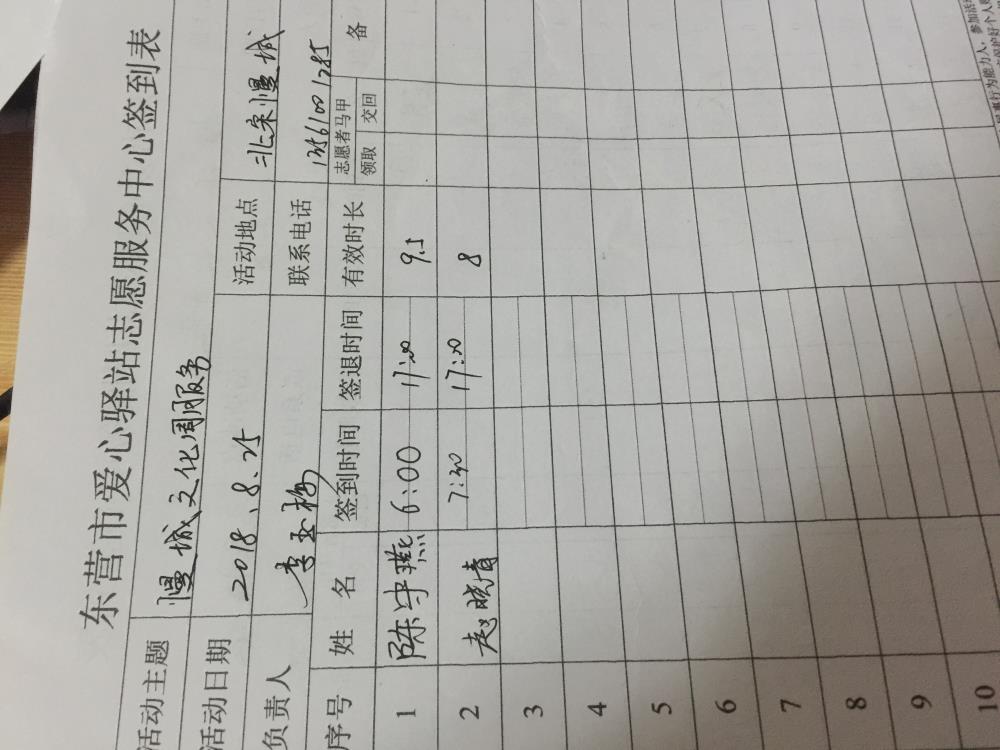 东营市爱心驿站志愿服务中心签到表
活动主题 慢城文化周服务
活动日期 2018.8.25 活动地点 北宋慢城
负责人 李玉梅 联系电话 13561001285
序号 姓名 签到时间 签退时间 有效时长 志愿者马甲 备
领取 交回
1 陈守燕 6:00 17:00 9.5
2 赵晓青 7:30 17:00 8
3
4
5
6
7
8
9
10